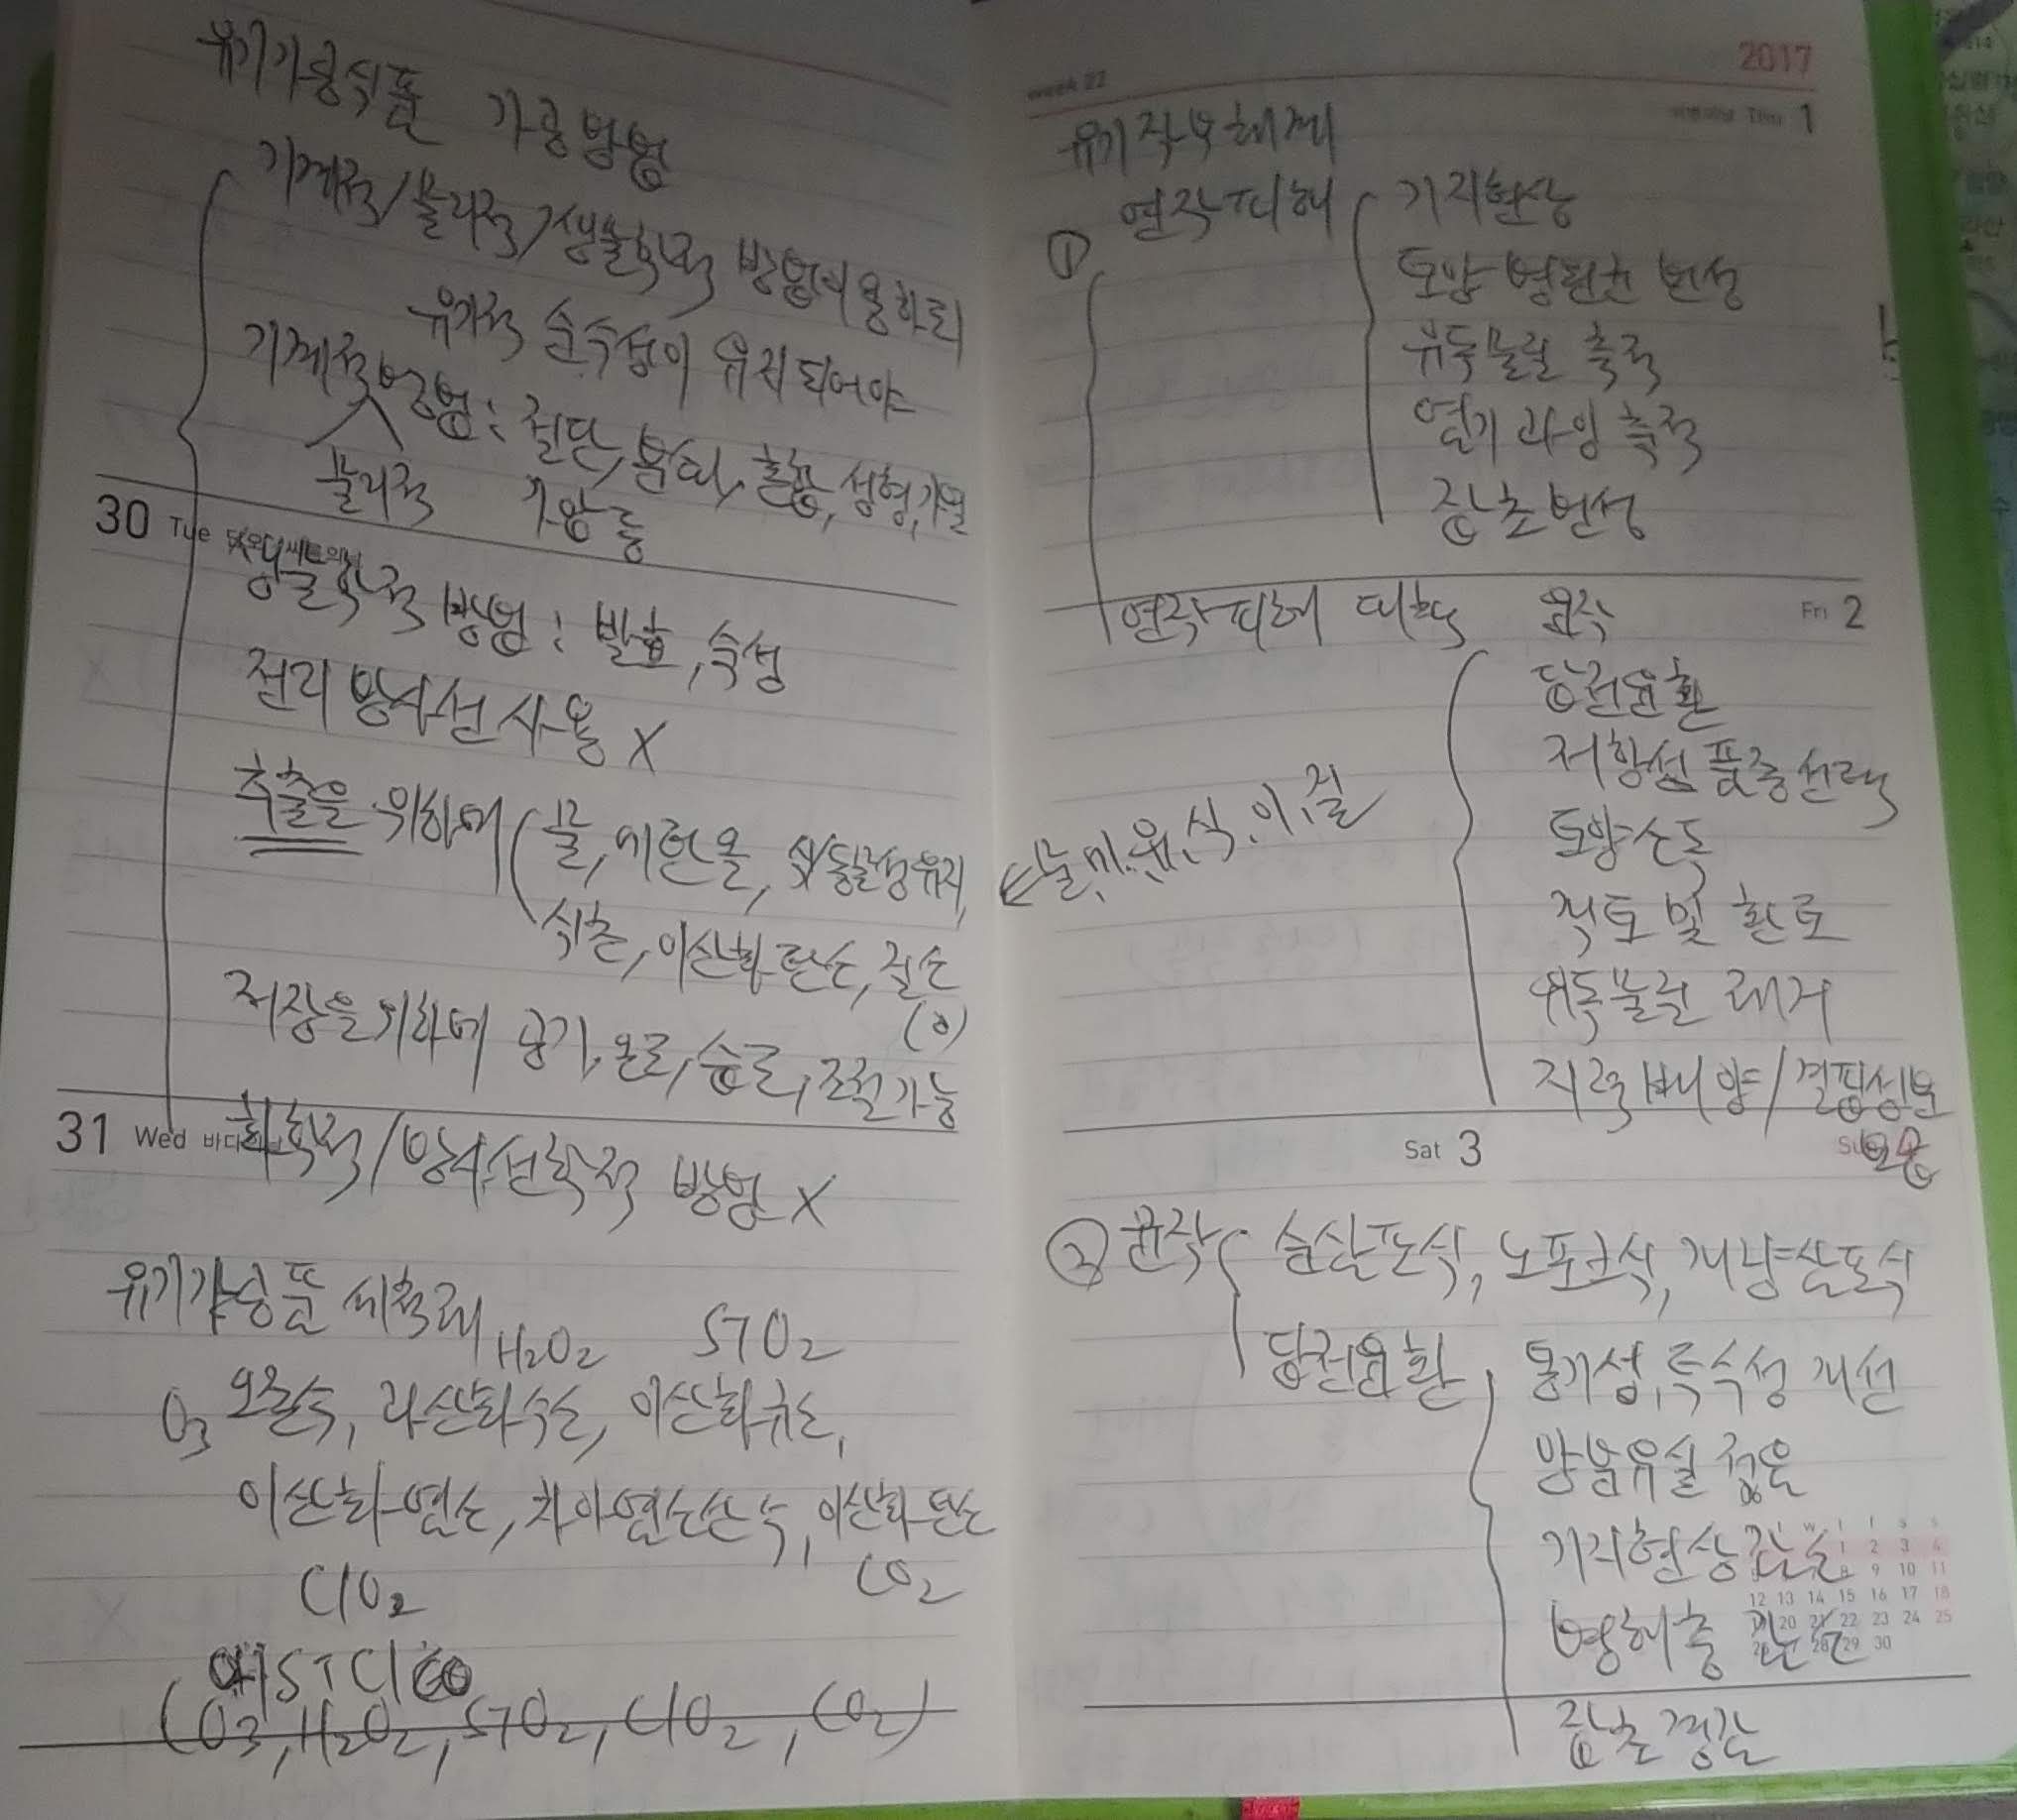 유기가공식품 가공방법
기계적/물리적/생물학적 방법 이용하되
유기적 순수성이 유지되어야
기계적 방법: 절단, 분쇄, 혼합, 성형, 가열
물리적 가압 등
30 Tue
생물학적 방법: 발효, 숙성
전리 방사선 사용 X
추출을 위하여 (물, 에탄올, 식/동물성유지,
식초, 이산화탄소, 질소
(O)
저장을 위하여 공기, 온도, 습도, 조절가능
31 Wed
화학적/방사선학적 방법 X
유기가공품 세척제
H2O2 SiO2
O3 오존수, 과산화수소, 이산화규소,
이산화염소, 차아염소산수, 이산화탄소
ClO2 CO2
OHSiClCO
(O3, H2O2, SiO2, ClO2, CO2)
week 22 2017
Thu 1
유기 작부체계
① 연작피해 기지현상
토양 병원균 번성
유독물질 축적
염기 과잉 축적
잡초번성
연작피해 대책 윤작
Fri 2
답전윤환
저항성 품종선택
토양소독
물, 에, 유, 식, 이, 질
객토 및 환토
유독물질 제거
지력배양/결핍성분
보충
Sat 3
② 윤작 순삼포식, 노포크식, 개량삼포식
답전윤환 통기성, 투수성 개선
양분유실 적음
기지현상 감소
병해충 감소
잡초 경감